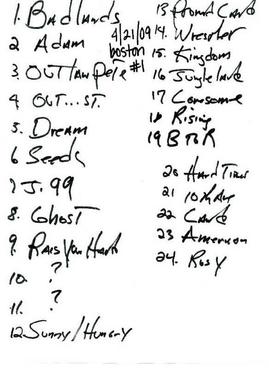 1. Badlands
2 Adam
3. OUTlaw Pete
4 OUT...ST.
5. Dream
6 Seeds
7 J. 99
8. Ghost
9. Rais You Hand
10. ?
11. ?
12. Sunny/Hungry
4/21/09
boston
#1
13 Promd Land
14. Wrestler
15. Kingdom
16 Jungleland
17 Lonesome
18 Rising
19 BTOR
20 Hard Times
21 10th Ave
22 Land
23 American
24. Rosy